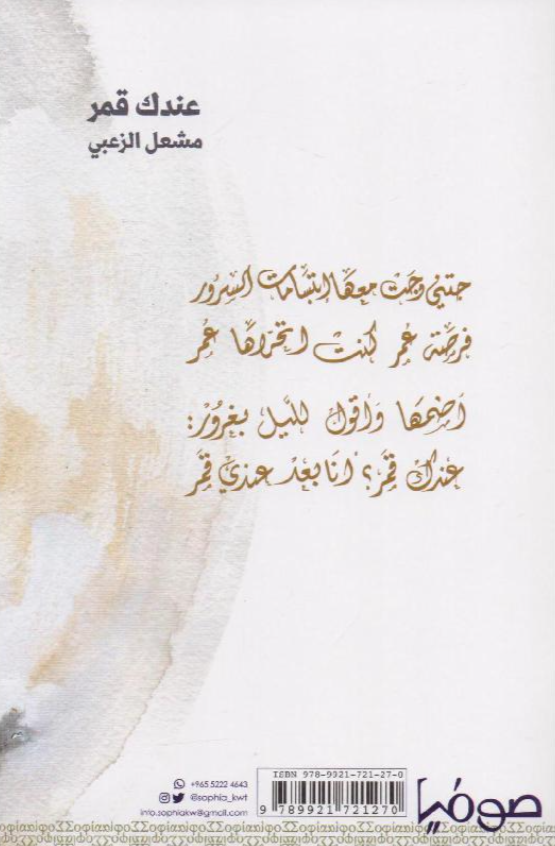 عندك قمر
مشعل الزعبي
جتني وجت معها ابتسامات السرور
فرصة عُمر كنت اتحراها عُمر
أضمها وأقول لليل بغرور:
عندك قمر؟ أنا بعد عندي قمر
+965 5222 4643
@sophia_kwt
info.sophiakw@gmail.com
ISBN 978-9921-721-27-0
9 789921 721270
صوفيا